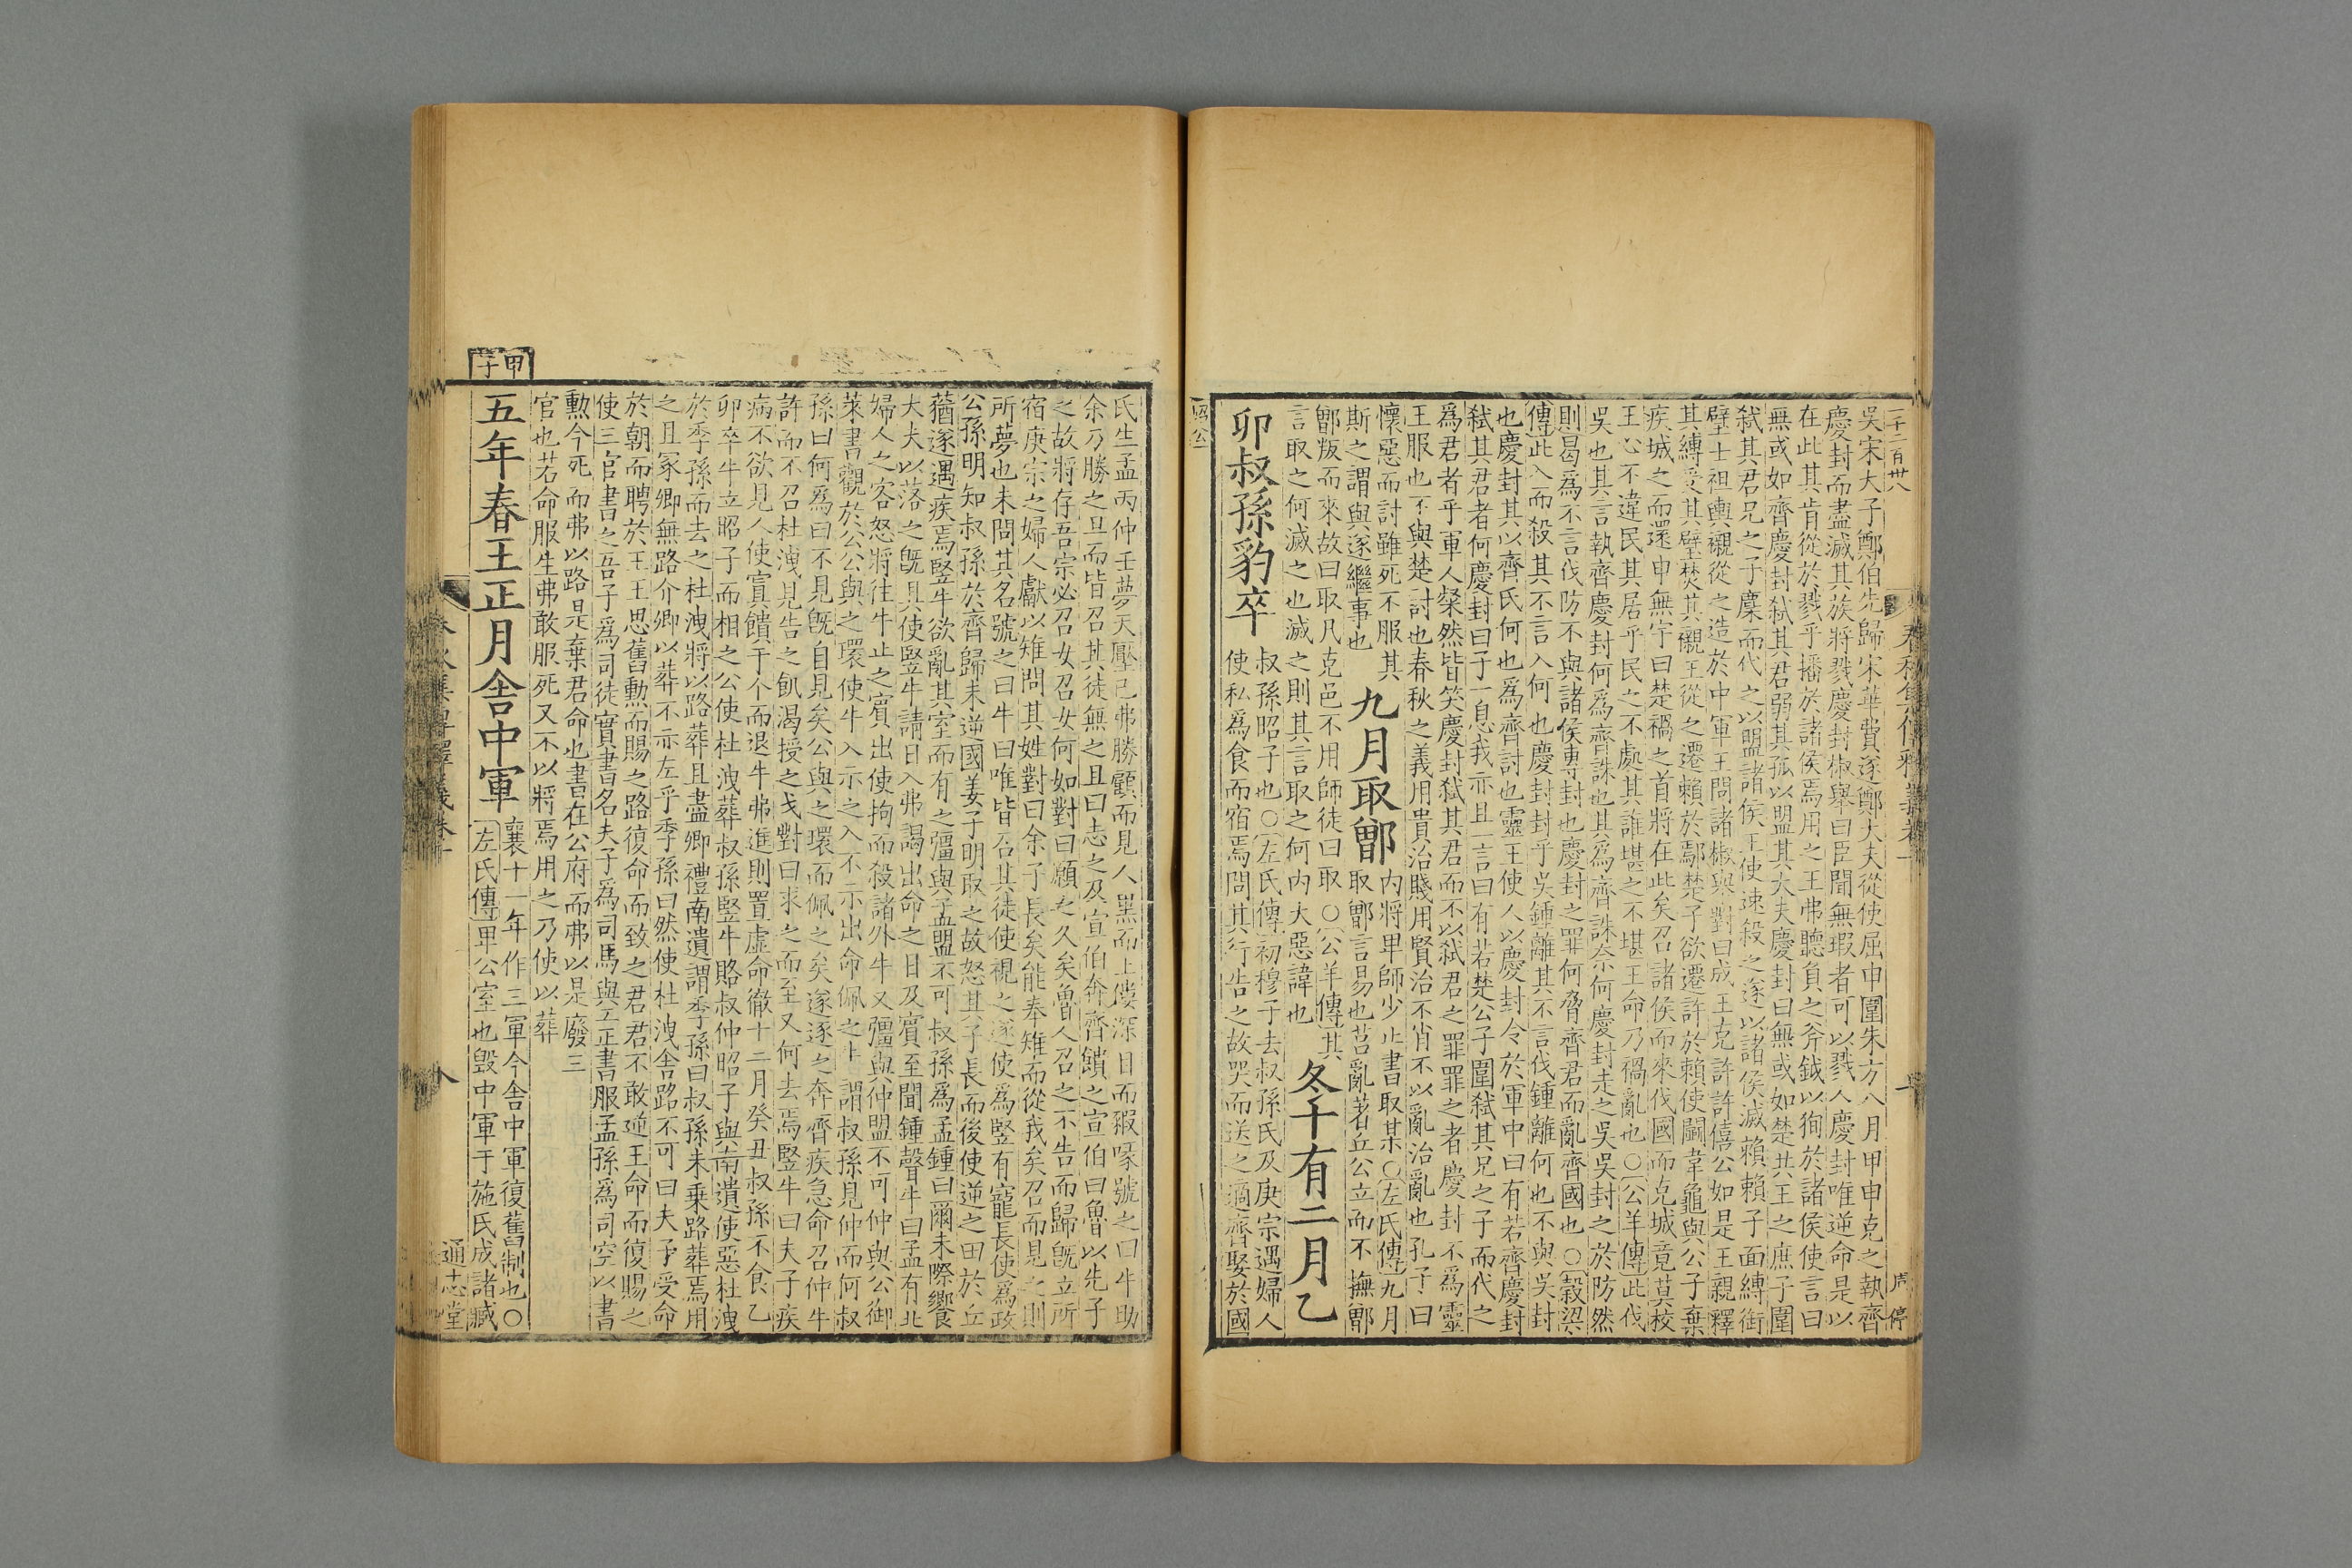 二百卅八
吳宋大子鄭伯先歸宋華費遂鄭大夫從使屈申圍朱方八月甲申克之執齊
慶封而盡滅其族將戮慶封椒舉曰臣聞無瑕者可以戮人慶封唯逆命是以
在此其肯從於戮乎播於諸侯焉用之王弗聽負之斧鉞以徇於諸侯使言曰
無或如齊慶封弑其君弱其孤以盟其大夫慶封曰無或如楚共王之庶子圍
弑其君兄之子麇而代之以盟諸侯王使速殺之遂以諸侯滅賴賴子面縛銜
璧士袒輿櫬從之造於中軍王問諸椒舉對曰成王克許許僖公如是王親釋
其縛受其璧焚其櫬王從之遷賴於鄢楚子欲遷許於賴使鬭韋龜與公子棄
疾城之而還申無宇曰楚禍之首將在此矣召諸侯而來伐國而克城竟莫校
王心不違民其居乎民之不處其誰堪之不堪王命乃禍亂也○公羊傳此伐
吳也其言執齊慶封何為齊誅也其為齊誅奈何慶封走之吳吳封之於防然
則曷為不言伐防不與諸侯專封也慶封之罪何脅齊君而亂齊國也○穀梁
傳此入而殺其不言入何也慶封封乎吳鍾離其不言伐鍾離何也不與吳封
也慶封其以齊氏何也為齊討也靈王使人以慶封令於軍中曰有若齊慶封
弑其君者何慶封曰子一息我亦且一言曰有若楚公子圍弑其兄之子而代之
為君者乎軍人粲然皆笑慶封弑其君而不以弑君之罪罪之者慶封不為靈
王服也不與楚討也春秋之義用貴治賤用賢治不肖不以亂治亂也孔子曰
懷惡而討雖死不服其
斯之謂與遂繼事也
九月取鄫
內將卑師少止書取某○左氏傳九月
取鄫言易也莒亂著丘公立而不撫鄫
鄫叛而來故曰取凡克邑不用師徒曰取○公羊傳其
言取之何滅之也滅之則其言取之何內大惡諱也
冬十有二月乙
卯叔孫豹卒
叔孫昭子也○左氏傳初穆子去叔孫氏及庚宗遇婦人
使私為食而宿焉問其行告之故哭而送之適齊娶於國
氏生孟丙仲壬夢天壓己弗勝顧而見人黑而上僂深目而豭喙號之曰牛助
余乃勝之旦而皆召其徒無之且曰志之及宣伯奔齊饋之宣伯曰魯以先子
之故將存吾宗必召女召女何如對曰願之久矣魯人召之不告而歸旣立所
宿庚宗之婦人獻以雉問其姓對曰余子長矣能奉雉而從我矣召而見之則
所夢也未問其名號之曰牛曰唯皆召其徒使視之遂使為豎有寵長使為政
公孫明知叔孫於齊歸未逆國姜子明取之故怒其子長而後使逆之田於丘
蕕遂遇疾焉豎牛欲亂其室而有之彊與孟盟不可叔孫為孟鍾曰爾未際饗
大夫以落之旣具使豎牛請日入弗謁出命之日及賓至聞鍾聲牛曰孟有北
婦人之客怒將往牛止之賓出使拘而殺諸外牛又彊與仲盟不可仲與公御
萊書觀於公公與之環使牛入示之入不示出命佩之牛謂叔孫見仲而何叔
孫曰何為曰不見旣自見矣公與之環而佩之矣遂逐之奔齊疾急命召仲牛
許而不召杜洩見告之飢渴授之戈對曰求之而至又何去焉豎牛曰夫子疾
病不欲見人使寘饋于个而退牛弗進則置虛命徹十二月癸丑叔孫不食乙
卯卒牛立昭子而相之公使杜洩葬叔孫豎牛賂叔仲昭子與南遺使惡杜洩
於季孫而去之杜洩將以路葬且盡卿禮南遺謂季孫曰叔孫未乗路葬焉用
之且冢卿無路介卿以葬不亦左乎季孫曰然使杜洩舍路不可曰夫子受命
於朝而聘於王王思舊勳而賜之路復命而致之君君不敢逆王命而復賜之
使三官書之吾子為司徒實書名夫子為司馬與工正書服孟孫為司空以書
勳今死而弗以路是棄君命也書在公府而弗以是廢三
官也若命服生弗敢服死又不以將焉用之乃使以葬
甲子
五年春王正月舍中軍
襄十一年作三軍今舍中軍復舊制也○
左氏傳卑公室也毀中軍于施氏成諸臧
八
通志堂